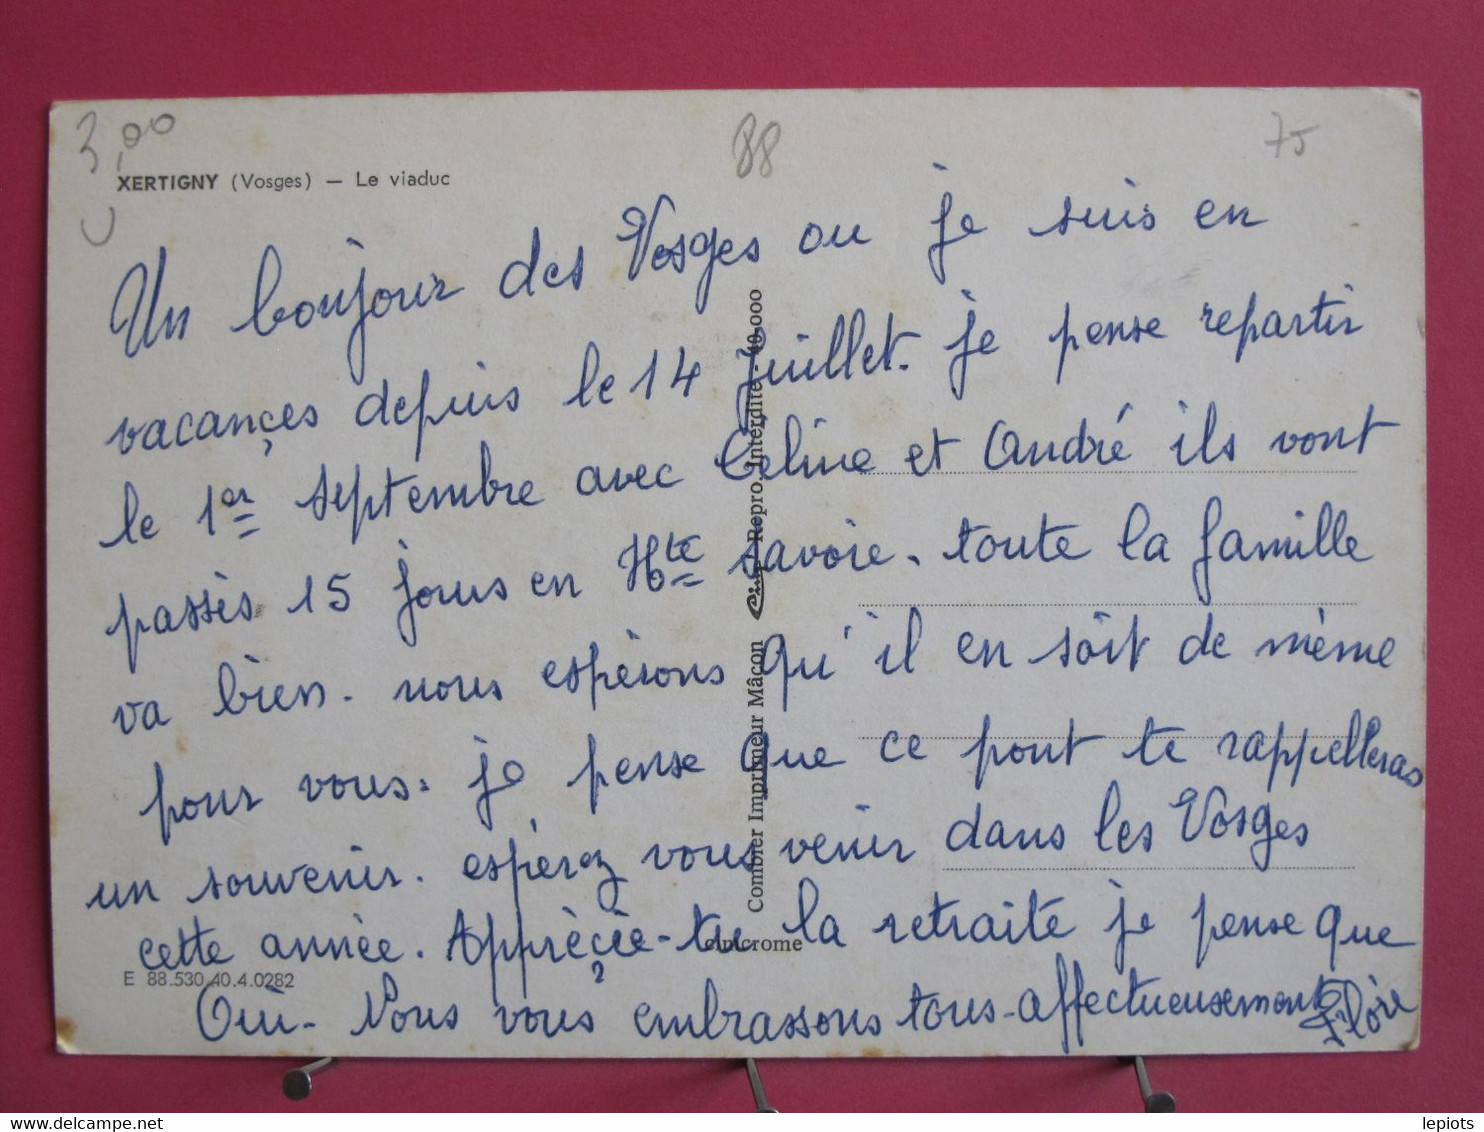 3,00
88
75
XERTIGNY (Vosges) — Le viaduc
Un bonjour des Vosges ou je suis en
vacançes depuis le 14 Juillet. je pense repartir
le 1er septembre avec Céline et André ils vont
passès 15 jours en Hte Savoie. toute la famille
va bien. nous espèrons qu'il en soit de même
pour vous. je pense que ce pont te rappelleras
un souvenir. espèrez vous venir dans les Vosges
cette année. Apprècie-tu la retraite je pense que
Oui. Nous vous embrassons tous affectueusement
E 88.530.40.4.0282
Combier Imprimeur Mâcon Cim Repro. Interdite - 40.000
cimcrome
delcampe.net
lepiots